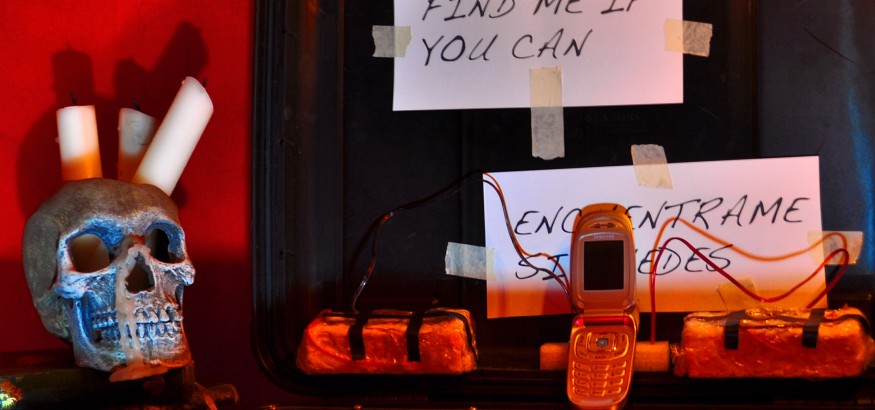 FIND ME IF
YOU CAN
ENCUENTRAME
SI PUEDES